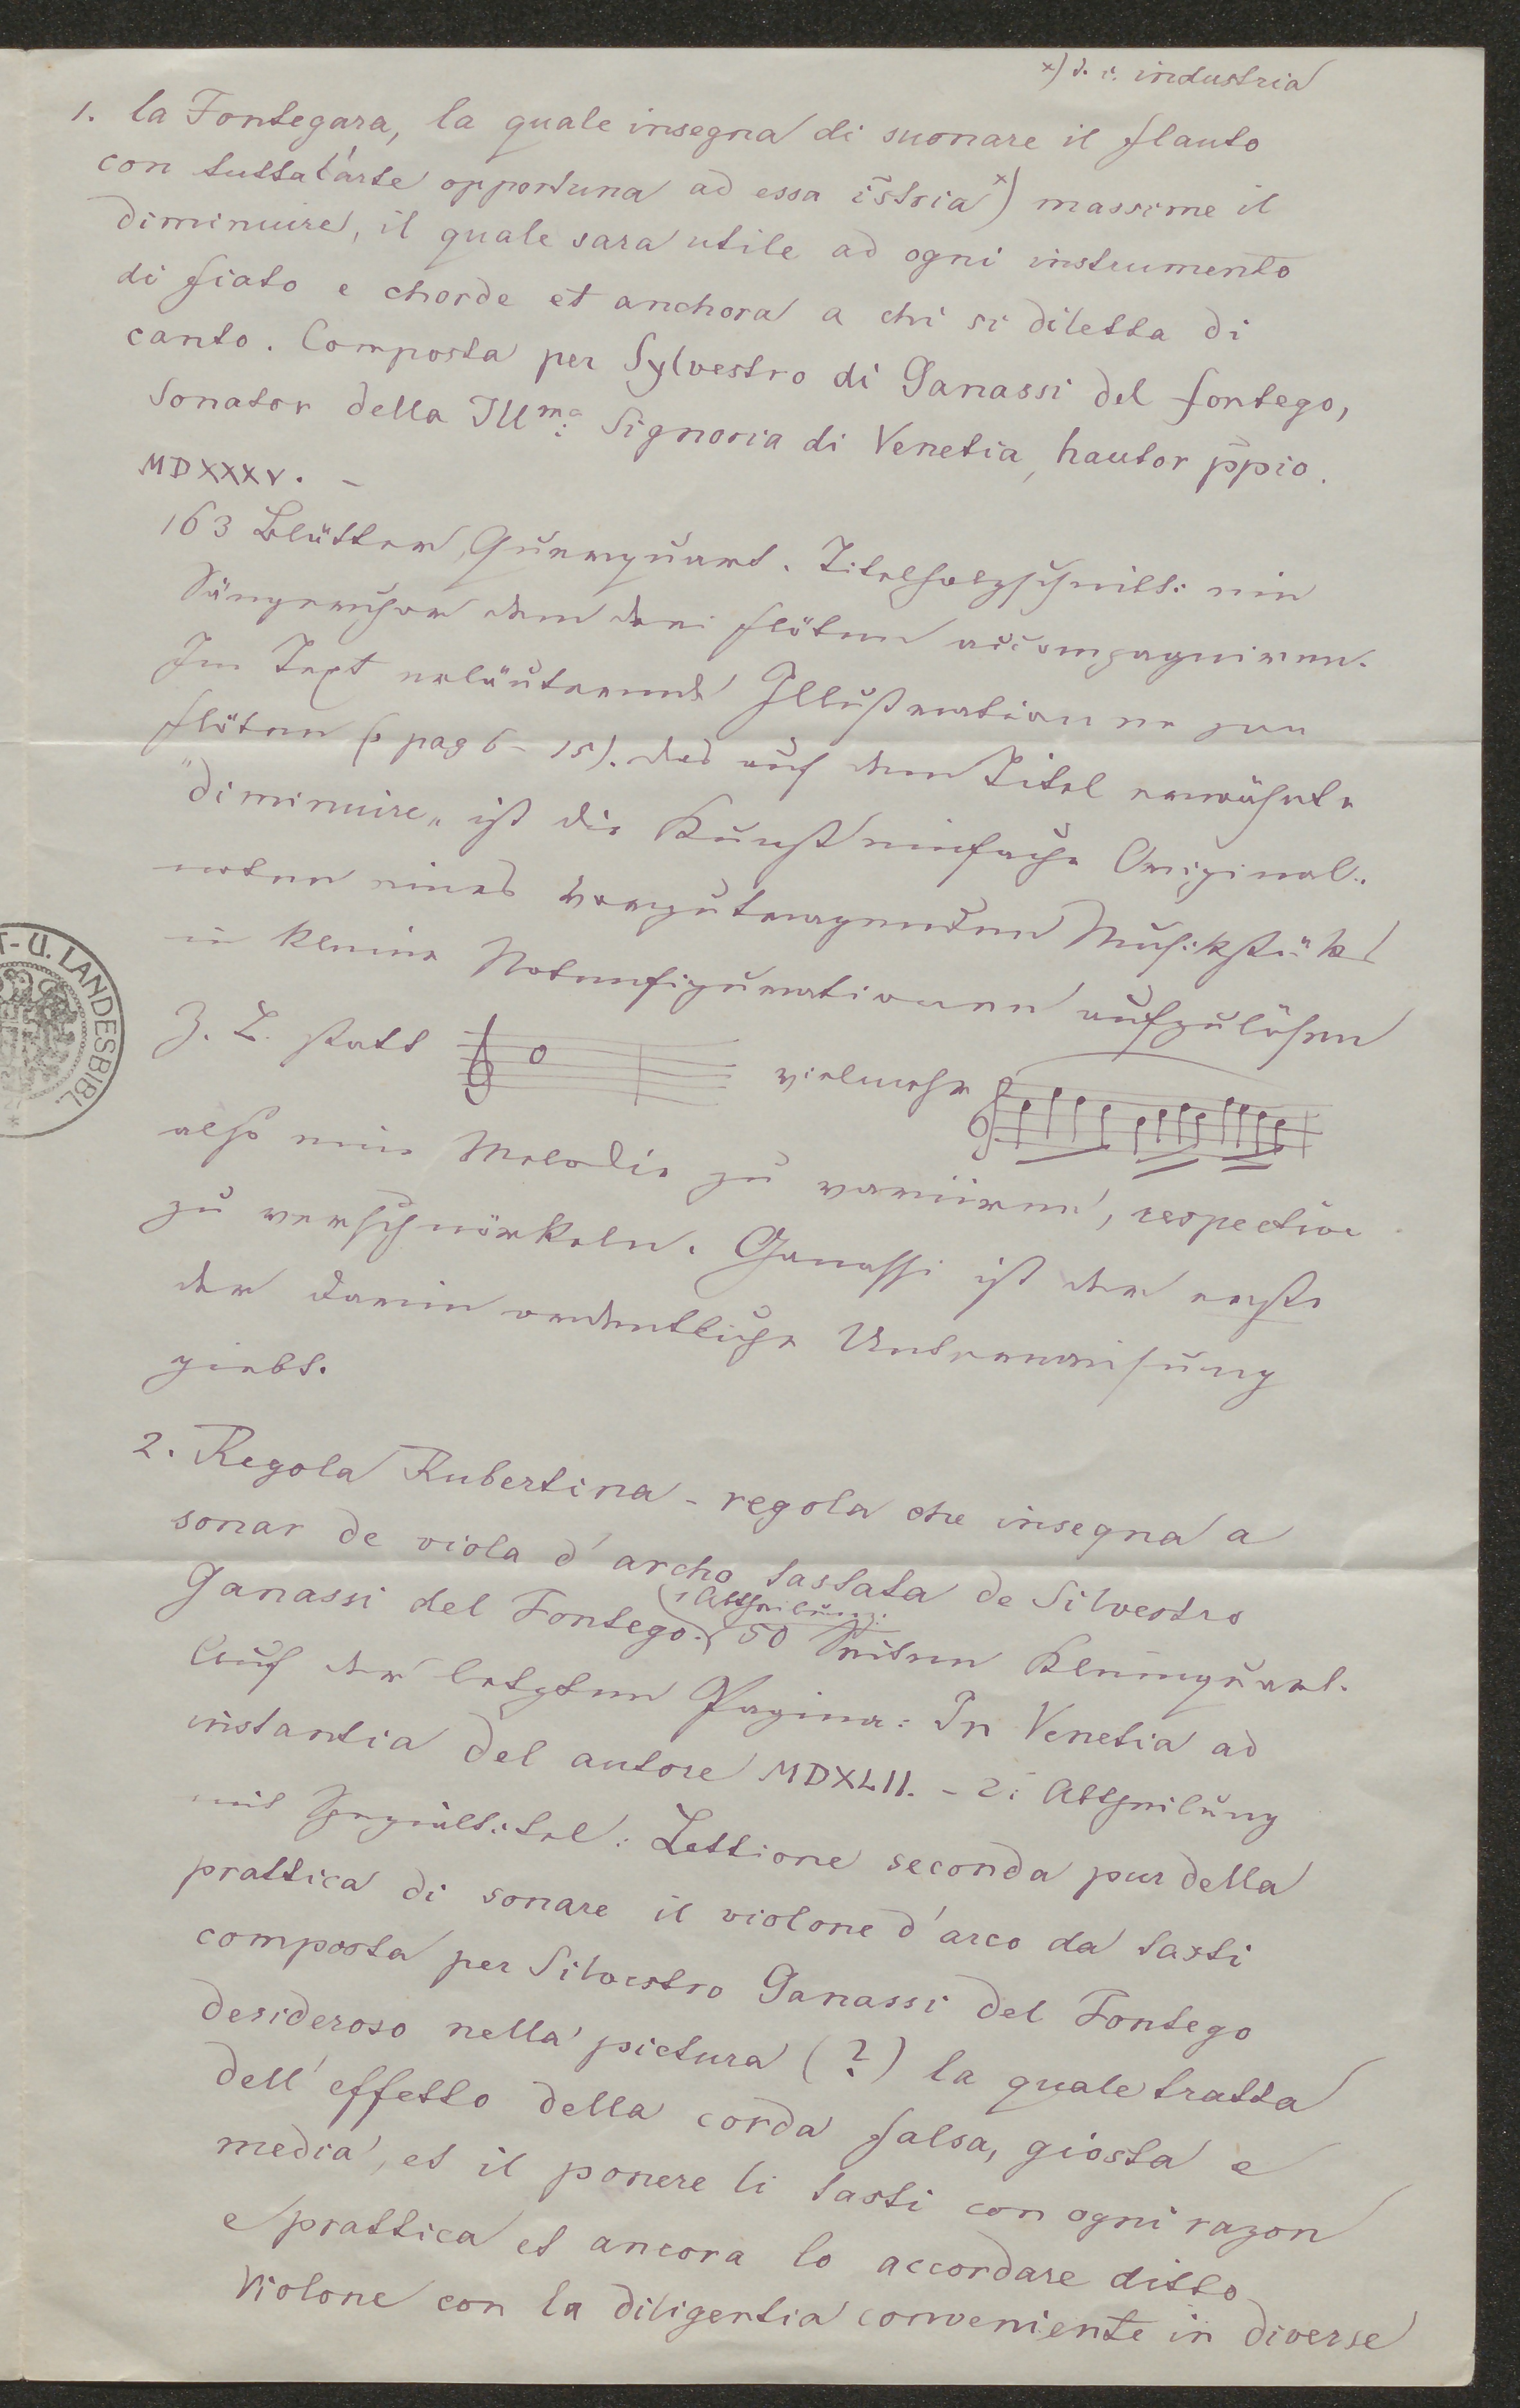 x) d. i. industria
1. la Fontegara, la quale insegna di suonare il flauto
con tutta l'arte opportuna ad essa ĩstria x) massime il
diminuire, il quale sara utile ad ogni instrumento
di fiato e chorde et anchora a chi si diletta di
canto. Composta per Sylvestro di Ganassi del fontego,
Sonator della Illma: Signoria di Venetia, hautor p̄pio.
MDXXXV. –
163 Blätter, Querquart. Titelholzschnitt: ein
Sängerchor dem drei Flöten accompagniren.
Im Text erläuternde Illustrationen zu
Flöten (pag 6 – 15). das auf dem Titel erwähnte
"diminuire" ist die Kunst einfache Original-
noten eines vorzutragenden Musikstücks
in kleine Notenfigurationen aufzulösen
Z. B. statt vielmehr
also eine Melodie zu variiren, respective
zu verschnörkeln. Ganassi ist der erste
der darin ordentliche Unterweisung
giebt.
2. Regola Rubertina – regola che insegna a
sonar de viola d'archo tastata de Silvestro
Ganassi del Fontego. (1 Abtheilung: 50 Seiten Kleinquart.
Auf der letzten Pagina: In Venetia ad
instantia del autore MDXLII. – 2: Abtheilung
mit Spezialtitel: Lettione seconda pur della
prattica di sonare il violone d'arco da tasti
composta per Silvestro Ganassi del Fontego
desideroso nella pictura (?) la quale tratta
dell' effetto della corda falsa, giosta e
media, et il ponere li tasti con ogni razon
e prattica et ancora lo accordare ditto
Violone con la diligentia conveniente in diverse
T- U. LANDESBIBL.